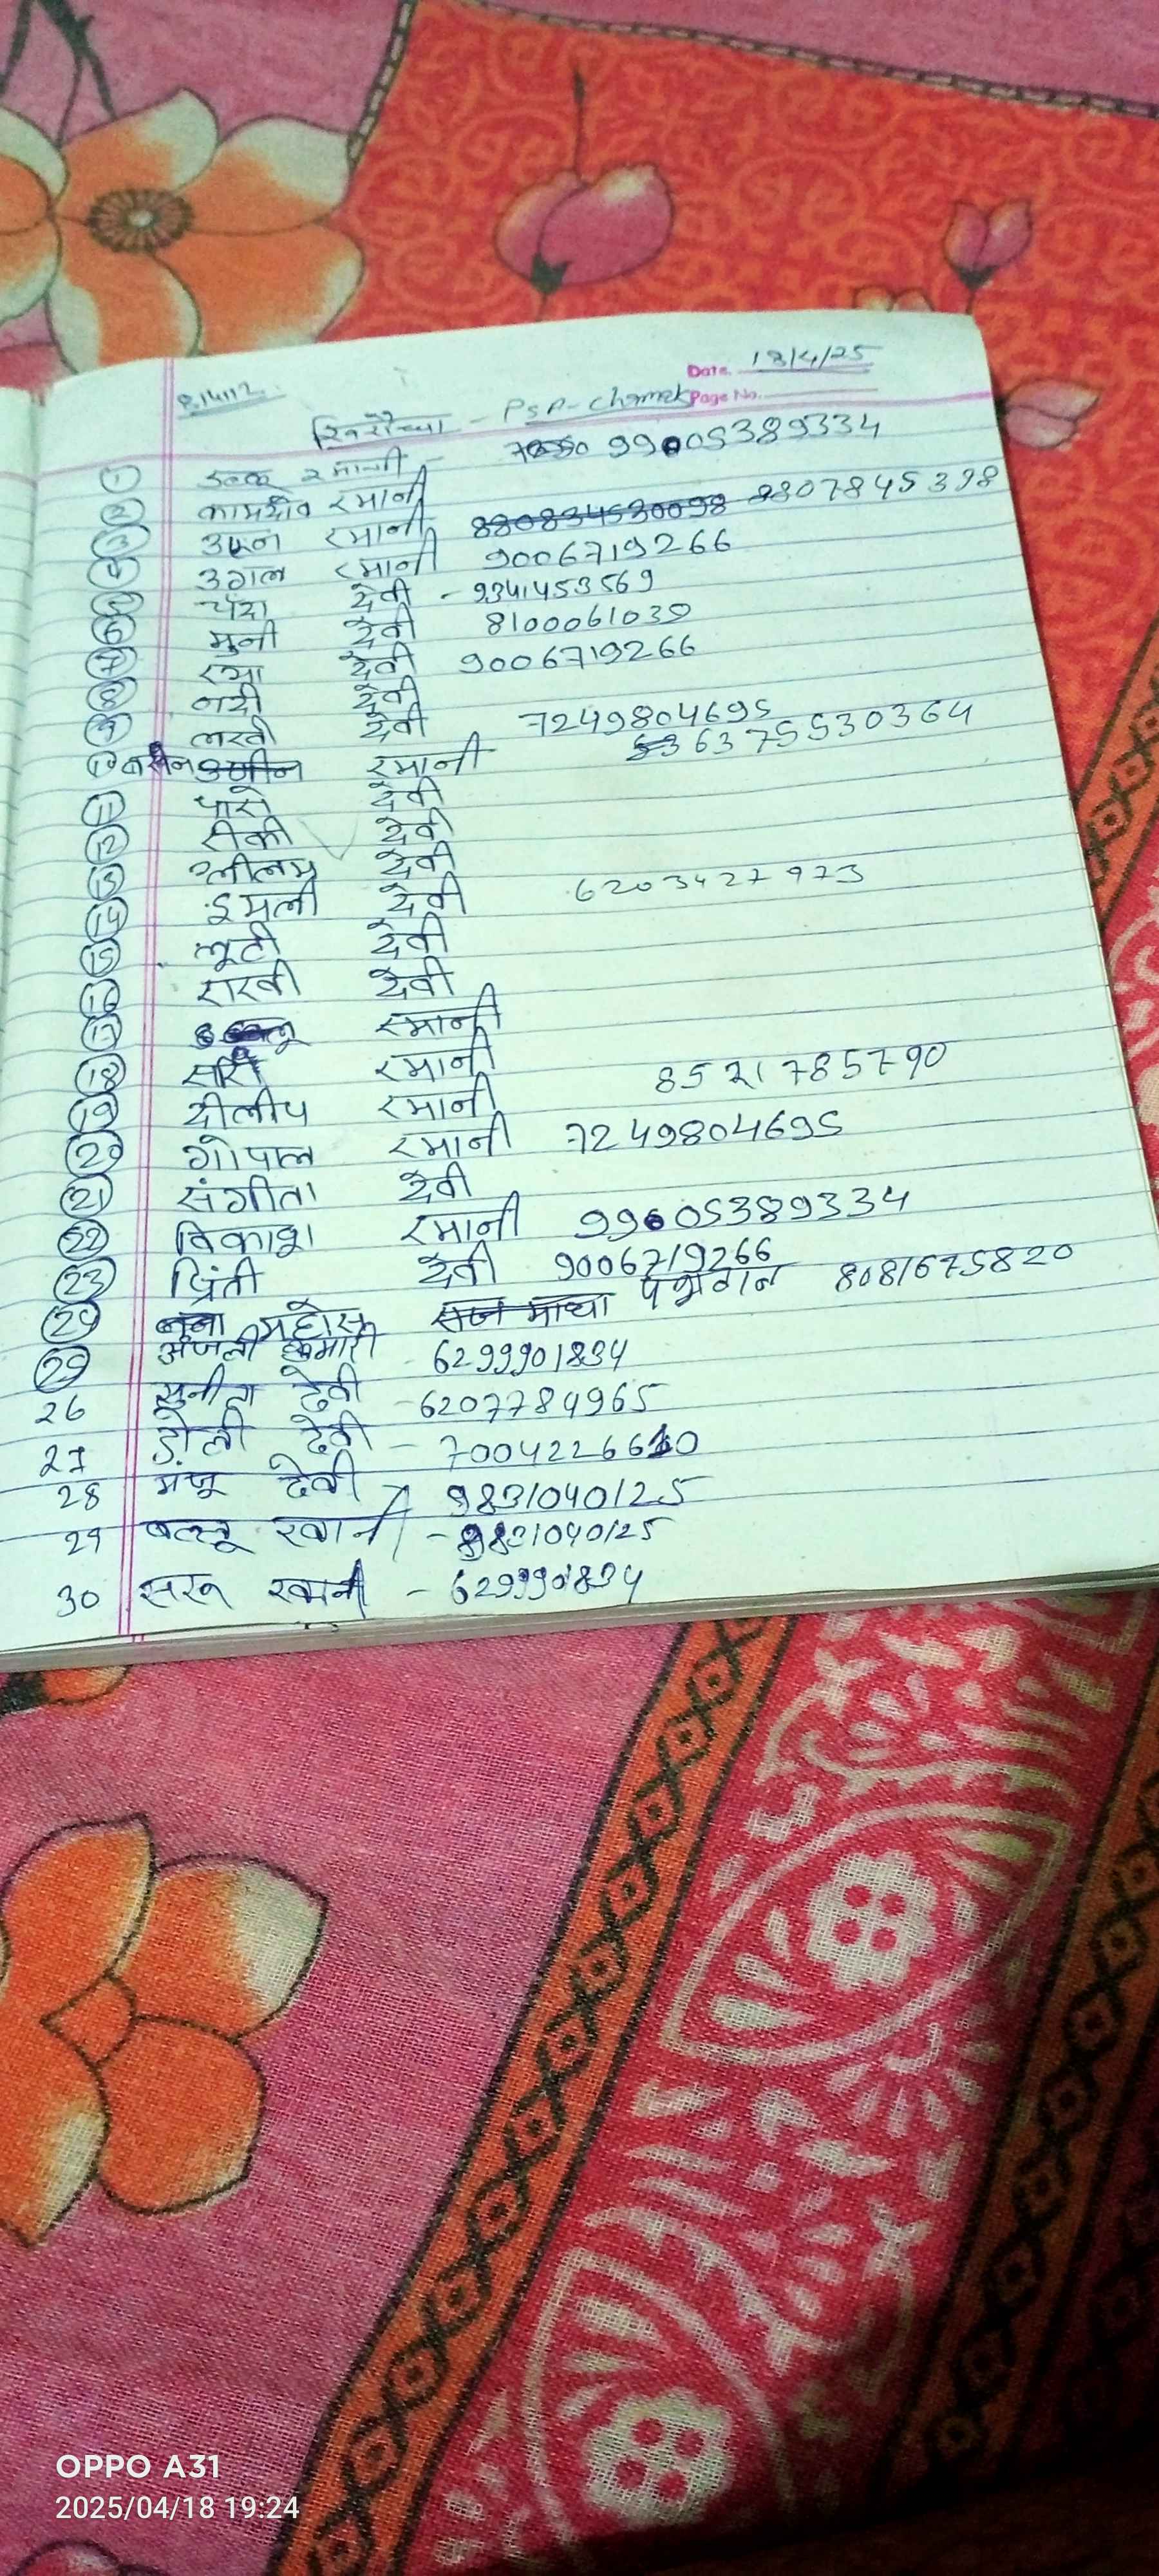 Date. 18/4/25
Page No.
PSA-Chamek
① रमानी - 9905389334
② कामदेव रमानी
③ रमानी 8807845398
④ उगल रमानी 9006719266
⑤ चंदा देवी - 9341453569
⑥ मुनी देवी 8100061039
⑦ रमा देवी 9006719266
⑧ नदी देवी
⑨ लखी देवी 7249804695
⑩ रमानी 6375530364
⑪ पारो देवी
⑫ रीकी देवी
⑬ नीलम देवी
⑭ इमली देवी 6203427973
⑮ लूटी देवी
⑯ राखी देवी
⑰ रमानी
⑱ रमानी
⑲ दीलीप रमानी 8521785790
⑳ गोपाल रमानी 7249804695
㉑ संगीता देवी
㉒ विकाश रमानी 9905389334
㉓ प्रिंती देवी 9006719266
㉔ 8081675820
㉕ अंजली कुमारी - 6299901834
26 सुनीता देवी - 6207784965
27 डोली देवी - 7004226610
28 मंजू देवी 9831040125
29 रवानी - 9831040125
30 रवानी - 6299901834
OPPO A31
2025/04/18 19:24